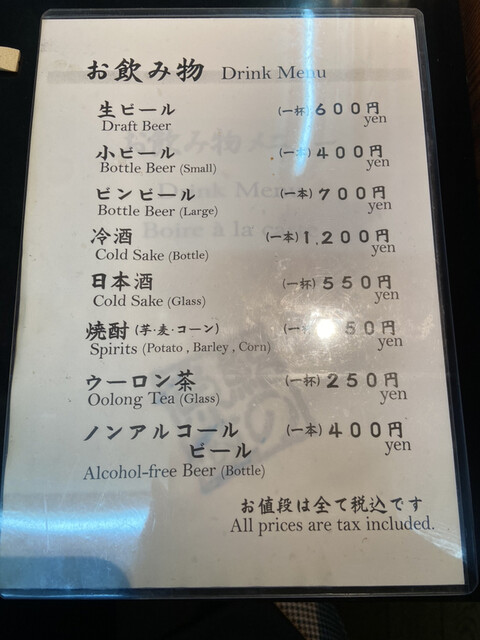 お飲み物 Drink Menu
生ビール (一杯) 600円
Draft Beer yen
小ビール (一本) 400円
Bottle Beer (Small) yen
ビンビール (一本) 700円
Bottle Beer (Large) yen
冷酒 (一本) 1,200円
Cold Sake (Bottle) yen
日本酒 (一杯) 550円
Cold Sake (Glass) yen
焼酎 (芋・麦・コーン) 50円
Spirits (Potato , Barley , Corn) yen
ウーロン茶 (一杯) 250円
Oolong Tea (Glass) yen
ノンアルコール (一本) 400円
ビール yen
Alcohol-free Beer (Bottle)
お値段は全て税込です
All prices are tax included.